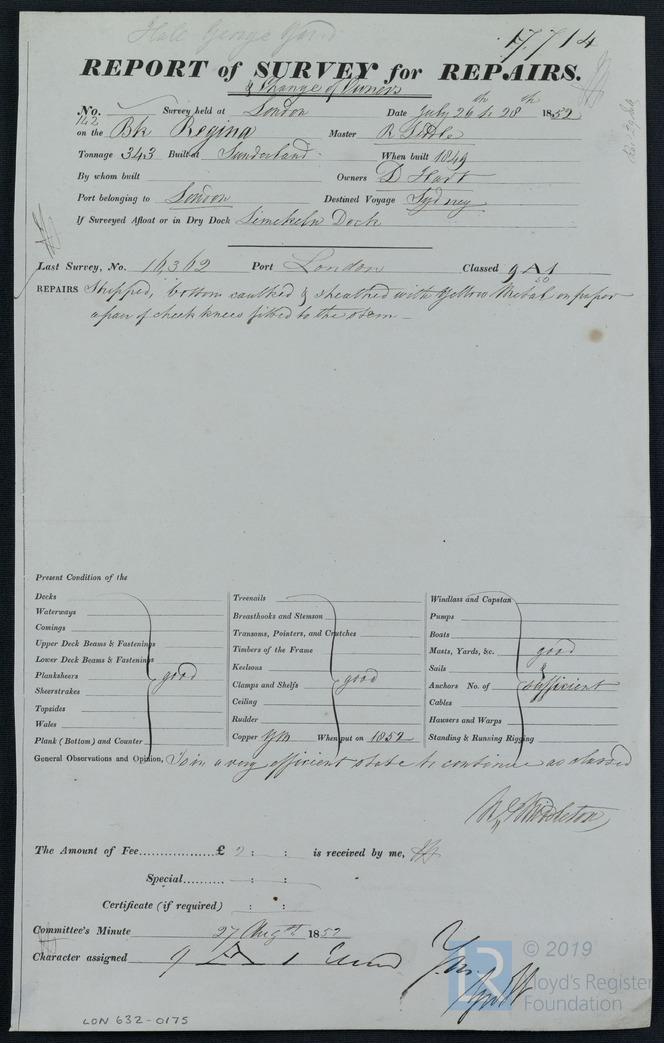 Hall George Yard
17714
REPORT of SURVEY for REPAIRS.
& Change of Owners
No. 142 Survey held at London Date July 26th & 28th 1852
on the Bk Regina Master R Liddle
Tonnage 343 Built at Sunderland When built 1849
By whom built Owners D Hart
Port belonging to London Destined Voyage Sydney
If Surveyed Afloat or in Dry Dock Limekiln Dock
Last Survey, No. 16,362 Port London Classed 9 A 1
50
REPAIRS Stripped, bottom caulked & sheathed with Yellow Metal on paper
a pair of cheek knees fitted to the stem
Present Condition of the
Decks
Waterways
Comings
Upper Deck Beams & Fastenings
Lower Deck Beams & Fastenings
Planksheers good
Sheerstrakes
Topsides
Wales
Plank (Bottom) and Counter
Treenails
Breasthooks and Stemson
Transoms, Pointers, and Crutches
Timbers of the Frame
Keelsons
Clamps and Shelfs good
Ceiling
Rudder
Copper YM When put on 1852
Windlass and Capstan
Pumps
Boats
Masts, Yards, &c. good
Sails &
Anchors No. of sufficient
Cables
Hawsers and Warps
Standing & Running Rigging
General Observations and Opinion, Is in a very efficient state to continue as classed
Middleton
The Amount of Fee £ 2 : : is received by me,
Special : :
Certificate (if required) : :
Committee's Minute 27 Augt 1852
Character assigned 9 A 1
LON 632-0175
LR © 2019
Lloyd's Register
Foundation